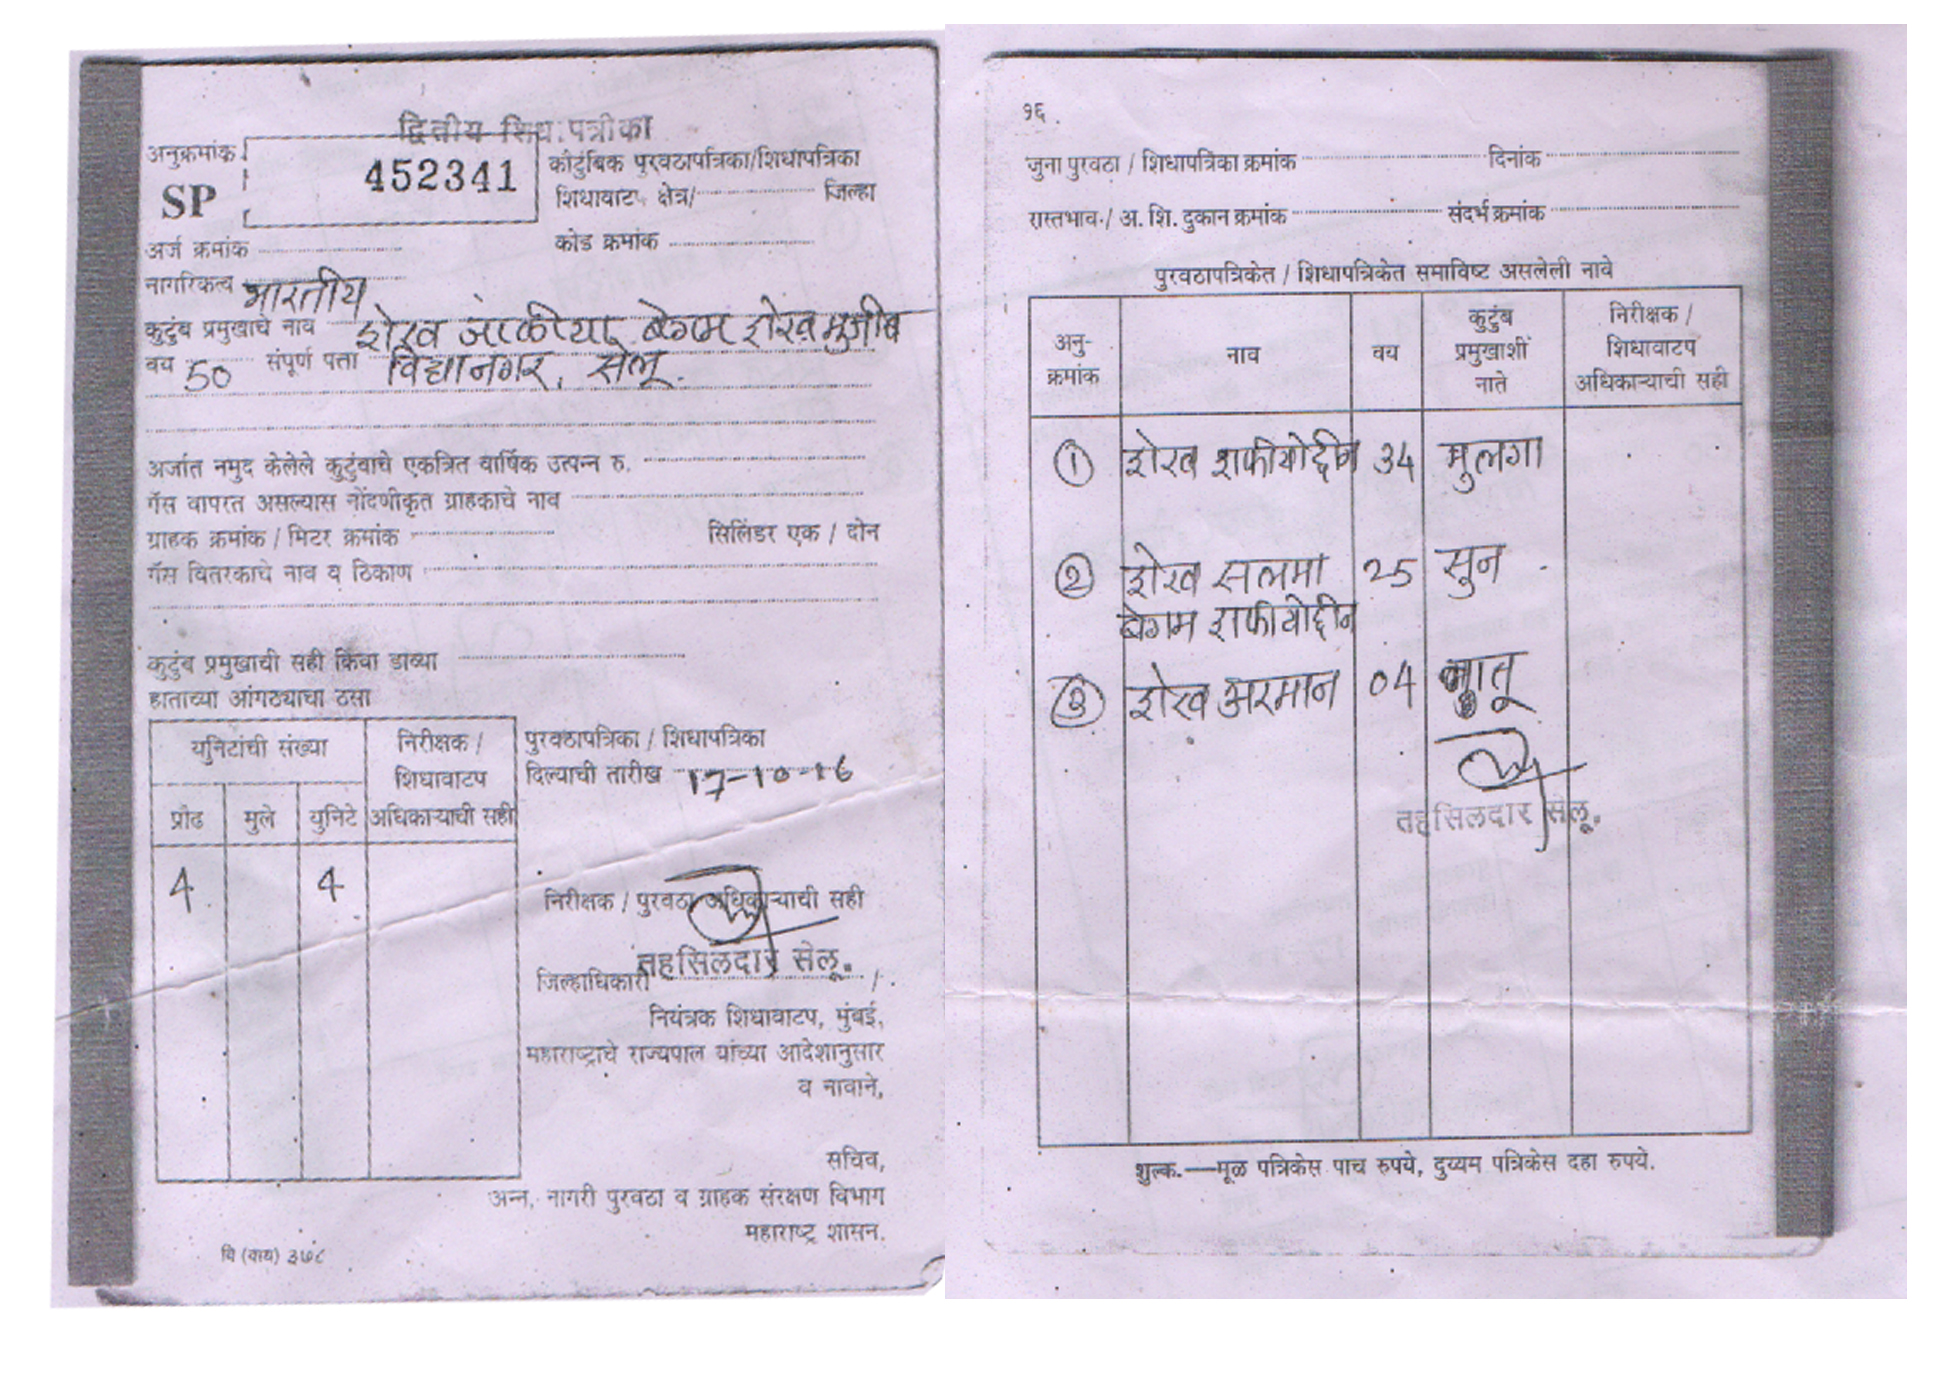 द्वितीय शिधापत्रीका
अनुक्रमांक
SP
452341
कौटुंबिक पुरवठापत्रिका/शिधापत्रिका
शिधावाटप क्षेत्र/ जिल्हा
कोड क्रमांक
अर्ज क्रमांक
नागरिकत्व भारतीय
कुटुंब प्रमुखाचे नाव शेख जाकीया बेगम शेख मुजीब
वय 50 संपूर्ण पत्ता विद्यानगर, सेलू.
अर्जात नमुद केलेले कुटुंबाचे एकत्रित वार्षिक उत्पन्न रु.
गॅस वापरत असल्यास नोंदणीकृत ग्राहकाचे नाव
ग्राहक क्रमांक / मिटर क्रमांक सिलिंडर एक / दोन
गॅस वितरकाचे नाव व ठिकाण
कुटुंब प्रमुखाची सही किंवा डाव्या
हाताच्या आंगठ्याचा ठसा
युनिटांची संख्या
निरीक्षक /
शिधावाटप
अधिकाऱ्याची सही
प्रौढ मुले युनिटे
4 4
पुरवठापत्रिका / शिधापत्रिका
दिल्याची तारीख 17-10-16
निरीक्षक / पुरवठा अधिकाऱ्याची सही
तहसिलदार सेलू.
जिल्हाधिकारी /
नियंत्रक शिधावाटप, मुंबई,
महाराष्ट्राचे राज्यपाल यांच्या आदेशानुसार
व नावाने,
सचिव,
अन्न, नागरी पुरवठा व ग्राहक संरक्षण विभाग
महाराष्ट्र शासन.
वि (वाय) ३७८
१६
जुना पुरवठा / शिधापत्रिका क्रमांक दिनांक
रास्तभाव / अ. शि. दुकान क्रमांक संदर्भ क्रमांक
पुरवठापत्रिकेत / शिधापत्रिकेत समाविष्ट असलेली नावे
अनु-
क्रमांक
नाव
वय
कुटुंब
प्रमुखाशी
नाते
निरीक्षक /
शिधावाटप
अधिकाऱ्याची सही
1 शेख शफीयोद्दीन 34 मुलगा
2 शेख सलमा 25 सुन
बेगम शफीयोद्दीन
3 शेख अरमान 04 नातू
तहसिलदार सेलू.
शुल्क.—मूळ पत्रिकेस पाच रुपये, दुय्यम पत्रिकेस दहा रुपये.